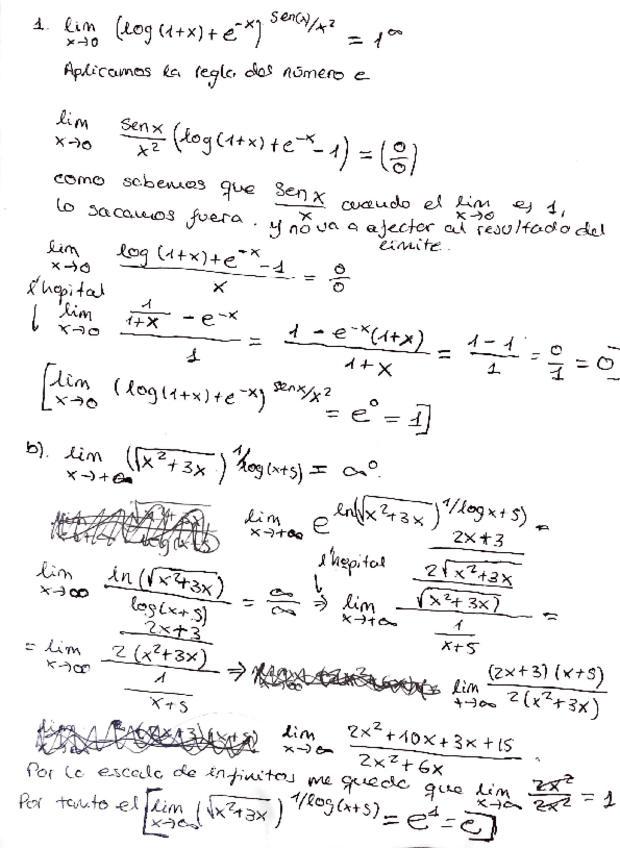 1. lim x→0 (log(1+x) + e^-x)^sen(x)/x^2 = 1^∞
Aplicamos la regla del número e
lim x→0 senx/x^2 (log(1+x) + e^-x - 1) = (0/0)
como sabemos que senx/x cuando el lim x→0 es 1,
lo sacamos fuera. y no va a afectar al resultado del
límite.
lim x→0 (log(1+x) + e^-x - 1)/x = 0/0
l'hopital
↓ lim x→0 (1/(1+x) - e^-x)/1 = (1 - e^-x(1+x))/(1+x) = (1-1)/1 = 0/1 = 0
[lim x→0 (log(1+x) + e^-x)^senx/x^2 = e^0 = 1]
b). lim x→+∞ (√(x^2+3x))^1/log(x+5) = ∞^0.
lim x→+∞ e^ln(√(x^2+3x))^1/log(x+5) =
lim x→∞ ln(√(x^2+3x))/log(x+5) = ∞/∞ ⇒ l'hopital ↓ lim x→+∞ (((2x+3)/(2√(x^2+3x)))/√(x^2+3x))/(1/(x+5)) =
= lim x→∞ ((2x+3)/(2(x^2+3x)))/(1/(x+5)) ⇒ lim x→∞ (2x+3)(x+5)/(2(x^2+3x))
lim x→∞ (2x^2+10x+3x+15)/(2x^2+6x).
Por la escala de infinitos me queda que lim x→∞ 2x^2/2x^2 = 1
Por tanto el [lim x→∞ (√(x^2+3x))^1/log(x+5) = e^1 = e]